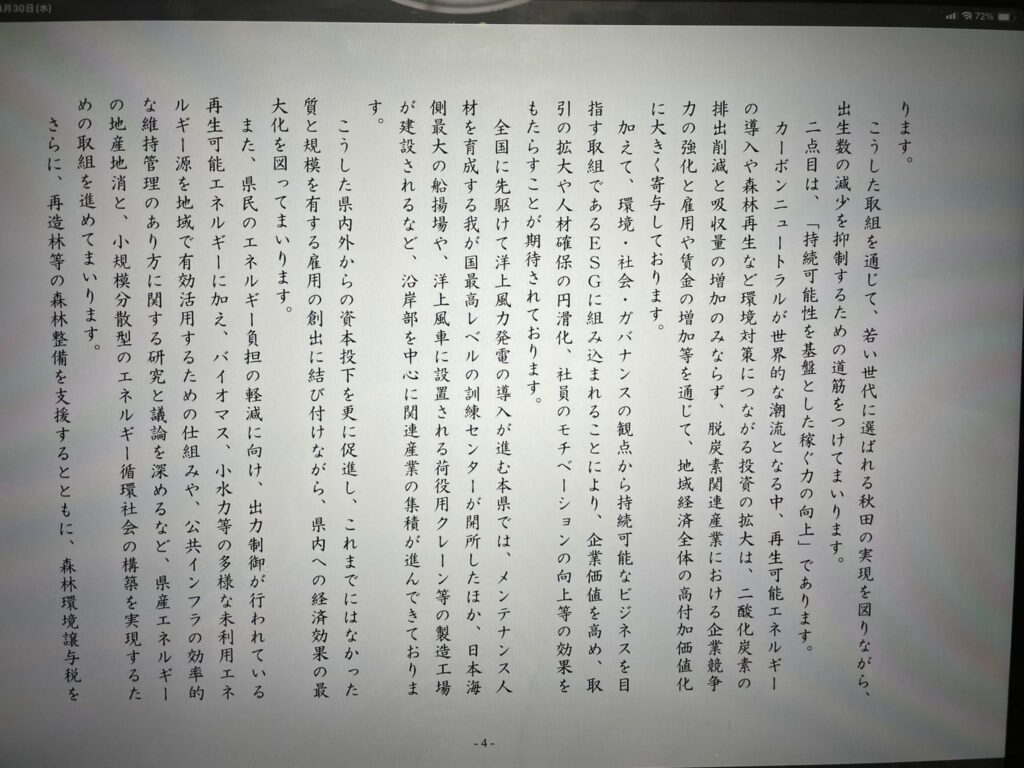 4月30日(水)
72%
ります。
こうした取組を通じて、若い世代に選ばれる秋田の実現を図りながら、
出生数の減少を抑制するための道筋をつけてまいります。
二点目は、「持続可能性を基盤とした稼ぐ力の向上」であります。
カーボンニュートラルが世界的な潮流となる中、再生可能エネルギー
の導入や森林再生など環境対策につながる投資の拡大は、二酸化炭素の
排出削減と吸収量の増加のみならず、脱炭素関連産業における企業競争
力の強化と雇用や賃金の増加等を通じて、地域経済全体の高付加価値化
に大きく寄与しております。
加えて、環境・社会・ガバナンスの観点から持続可能なビジネスを目
指す取組であるＥＳＧに組み込まれることにより、企業価値を高め、取
引の拡大や人材確保の円滑化、社員のモチベーションの向上等の効果を
もたらすことが期待されております。
全国に先駆けて洋上風力発電の導入が進む本県では、メンテナンス人
材を育成する我が国最高レベルの訓練センターが開所したほか、日本海
側最大の船揚場や、洋上風車に設置される荷役用クレーン等の製造工場
が建設されるなど、沿岸部を中心に関連産業の集積が進んできておりま
す。
こうした県内外からの資本投下を更に促進し、これまでにはなかった
質と規模を有する雇用の創出に結び付けながら、県内への経済効果の最
大化を図ってまいります。
また、県民のエネルギー負担の軽減に向け、出力制御が行われている
再生可能エネルギーに加え、バイオマス、小水力等の多様な未利用エネ
ルギー源を地域で有効活用するための仕組みや、公共インフラの効率的
な維持管理のあり方に関する研究と議論を深めるなど、県産エネルギー
の地産地消と、小規模分散型のエネルギー循環社会の構築を実現するた
めの取組を進めてまいります。
さらに、再造林等の森林整備を支援するとともに、森林環境譲与税を
- 4 -